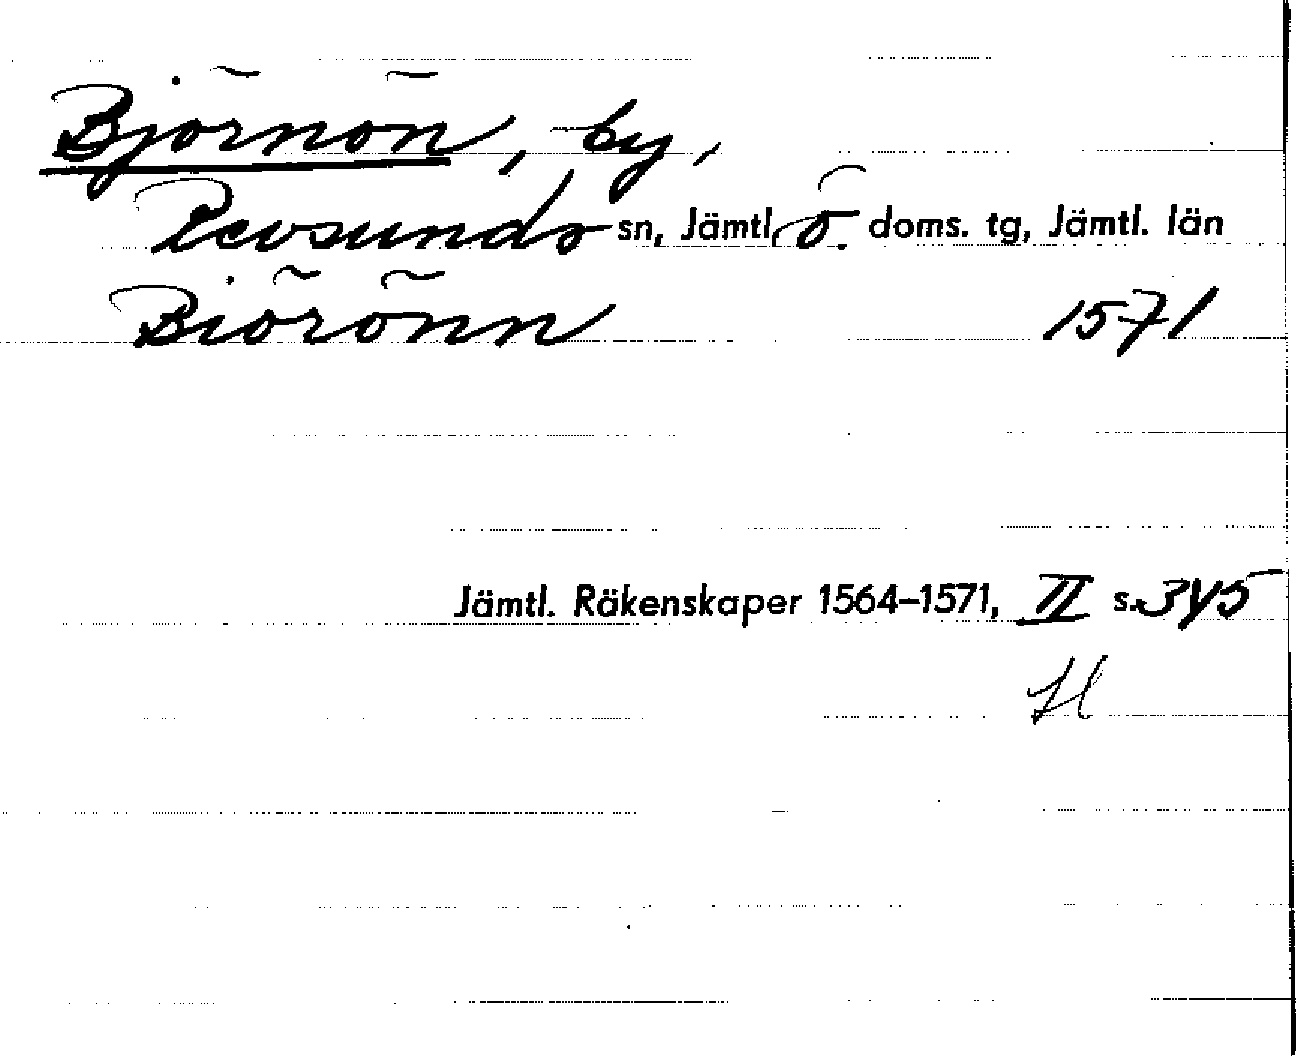 Björnön, by,
Revsunds sn, Jämtl. Ö. doms. tg, Jämtl. län
Biörönn 1571
Jämtl. Räkenskaper 1564–1571, II s. 345
H